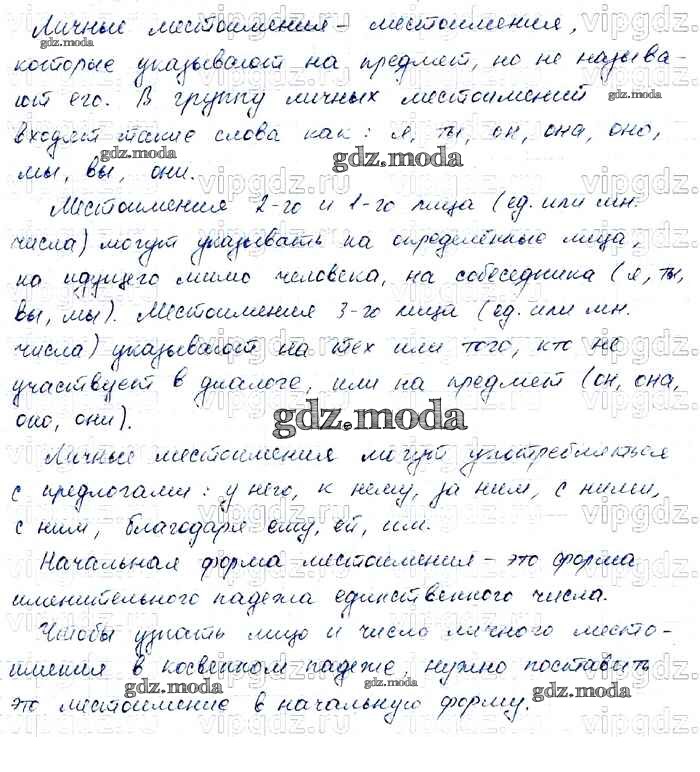 Личные местоимения - местоимения,
gdz.moda
которые указывают на предмет, но не называ-
ют его. В группу личных местоимений
gdz.moda
входят такие слова как: я, ты, он, она, оно,
gdz.moda
мы, вы, они.
gdz.moda
Местоимения 2-го и 1-го лица (ед. или мн.
числа) могут указывать на определённые лица,
на идущего мимо человека, на собеседника (я, ты,
gdz.moda
вы, мы). Местоимения 3-го лица (ед. или мн.
числа) указывают на тех или того, кто не
участвует в диалоге, или на предмет (он, она,
оно, они).
gdz.moda
Личные местоимения могут употребляться
с предлогами: у него, к нему, за ним, с ними,
с ним, благодаря ему, ей, им.
Начальная форма местоимения - это форма
именительного падежа единственного числа.
Чтобы узнать лицо и число личного место-
имения в косвенном падеже, нужно поставить
gdz.moda gdz.moda
это местоимение в начальную форму.